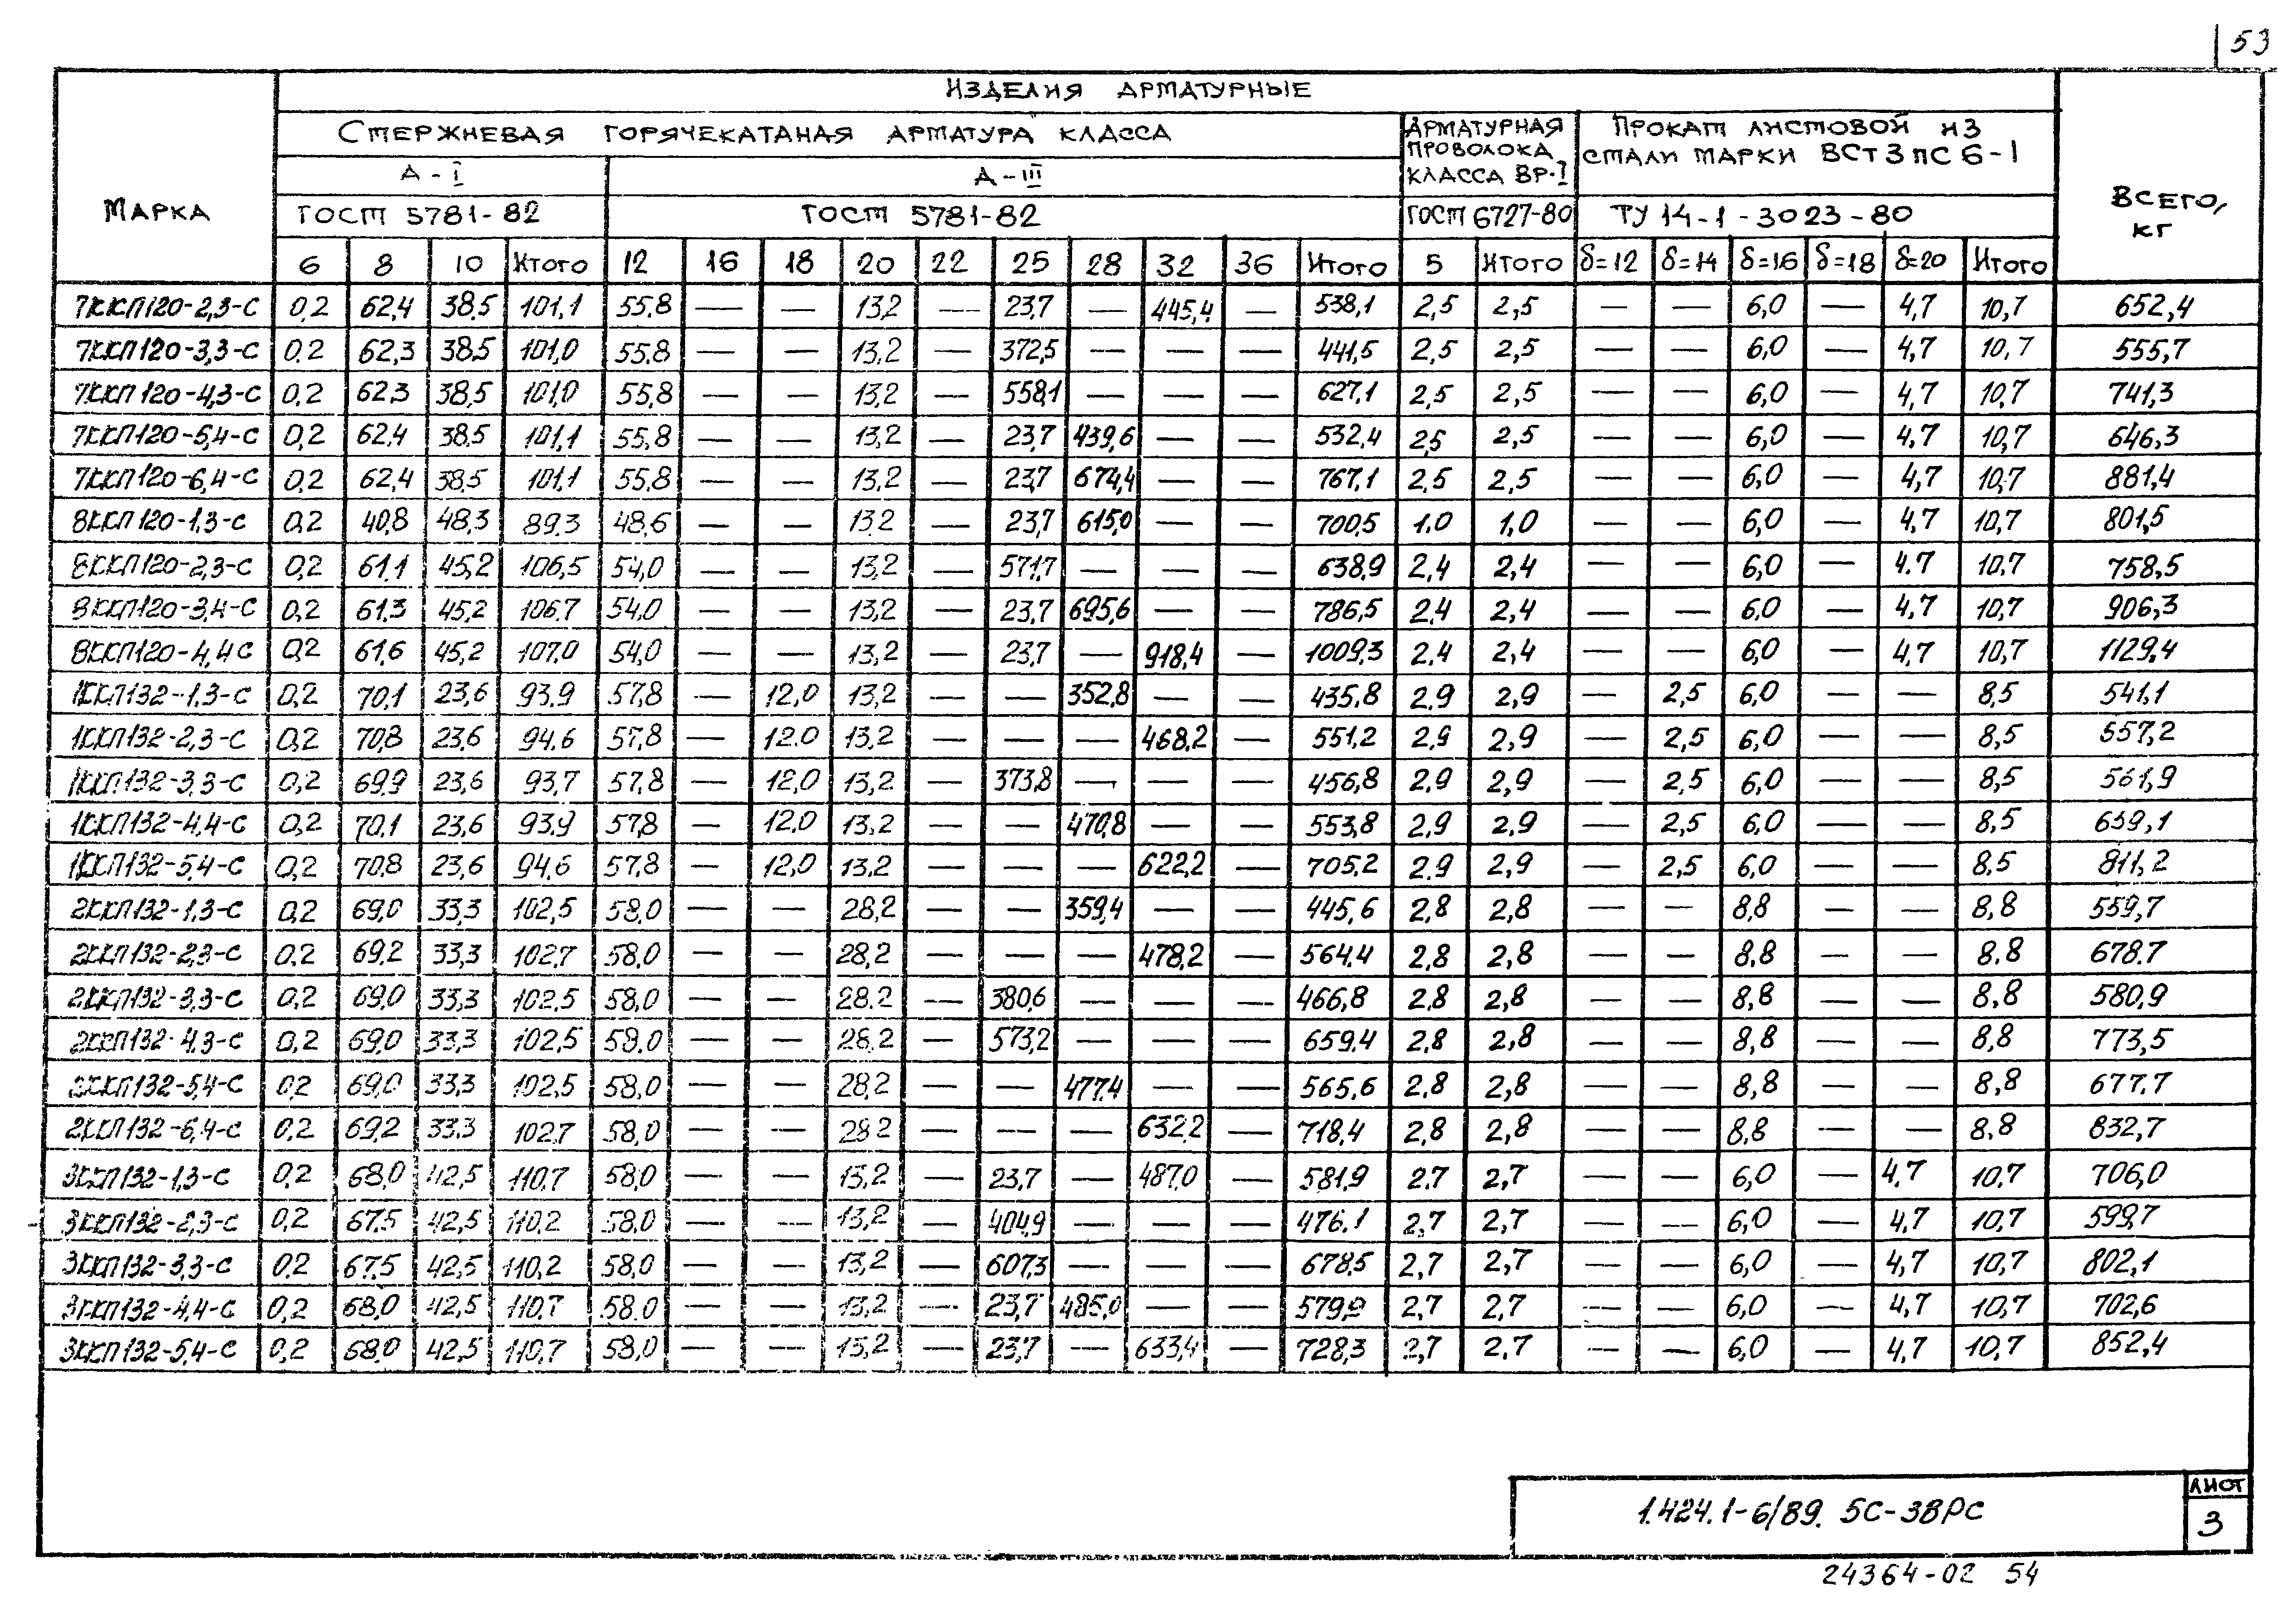 53
ИЗДЕЛИЯ АРМАТУРНЫЕ
СТЕРЖНЕВАЯ ГОРЯЧЕКАТАНАЯ АРМАТУРА КЛАССА
АРМАТУРНАЯ ПРОВОЛОКА КЛАССА ВР-I
ПРОКАТ ЛИСТОВОЙ ИЗ СТАЛИ МАРКИ ВСТ3ПС6-1
А-I А-III
МАРКА ГОСТ 5781-82 ГОСТ 5781-82 ГОСТ 6727-80 ТУ 14-1-3023-80 ВСЕГО, КГ
6 8 10 Итого 12 16 18 20 22 25 28 32 36 Итого 5 Итого δ=12 δ=14 δ=16 δ=18 δ=20 Итого
7ККП120-2,3-С 0,2 62,4 38,5 101,1 55,8 — — 13,2 — 23,7 — 445,4 — 538,1 2,5 2,5 — — 6,0 — 4,7 10,7 652,4
7ККП120-3,3-С 0,2 62,3 38,5 101,0 55,8 — — 13,2 — 372,5 — — — 441,5 2,5 2,5 — — 6,0 — 4,7 10,7 555,7
7ККП120-4,3-С 0,2 62,3 38,5 101,0 55,8 — — 13,2 — 558,1 — — — 627,1 2,5 2,5 — — 6,0 — 4,7 10,7 741,3
7ККП120-5,4-С 0,2 62,4 38,5 101,1 55,8 — — 13,2 — 23,7 439,6 — — 532,4 2,5 2,5 — — 6,0 — 4,7 10,7 646,3
7ККП120-6,4-С 0,2 62,4 38,5 101,1 55,8 — — 13,2 — 23,7 674,4 — — 767,1 2,5 2,5 — — 6,0 — 4,7 10,7 881,4
8ККП120-1,3-С 0,2 40,8 48,3 89,3 48,6 — — 13,2 — 23,7 615,0 — — 700,5 1,0 1,0 — — 6,0 — 4,7 10,7 801,5
8ККП120-2,3-С 0,2 61,1 45,2 106,5 54,0 — — 13,2 — 571,7 — — — 638,9 2,4 2,4 — — 6,0 — 4,7 10,7 758,5
8ККП120-3,4-С 0,2 61,3 45,2 106,7 54,0 — — 13,2 — 23,7 695,6 — — 786,5 2,4 2,4 — — 6,0 — 4,7 10,7 906,3
8ККП120-4,4С 0,2 61,6 45,2 107,0 54,0 — — 13,2 — 23,7 — 918,4 — 1009,3 2,4 2,4 — — 6,0 — 4,7 10,7 1129,4
1ККП132-1,3-С 0,2 70,1 23,6 93,9 57,8 — 12,0 13,2 — — 352,8 — — 435,8 2,9 2,9 — 2,5 6,0 — — 8,5 541,1
1ККП132-2,3-С 0,2 70,8 23,6 94,6 57,8 — 12,0 13,2 — — — 468,2 — 551,2 2,9 2,9 — 2,5 6,0 — — 8,5 557,2
1ККП132-3,3-С 0,2 69,9 23,6 93,7 57,8 — 12,0 13,2 — 373,8 — — — 456,8 2,9 2,9 — 2,5 6,0 — — 8,5 561,9
1ККП132-4,4-С 0,2 70,1 23,6 93,9 57,8 — 12,0 13,2 — — 470,8 — — 553,8 2,9 2,9 — 2,5 6,0 — — 8,5 659,1
1ККП132-5,4-С 0,2 70,8 23,6 94,6 57,8 — 12,0 13,2 — — — 622,2 — 705,2 2,9 2,9 — 2,5 6,0 — — 8,5 811,2
2ККП132-1,3-С 0,2 69,0 33,3 102,5 58,0 — — 28,2 — — 359,4 — — 445,6 2,8 2,8 — — 8,8 — — 8,8 559,7
2ККП132-2,3-С 0,2 69,2 33,3 102,7 58,0 — — 28,2 — — — 478,2 — 564,4 2,8 2,8 — — 8,8 — — 8,8 678,7
2ККП132-3,3-С 0,2 69,0 33,3 102,5 58,0 — — 28,2 — 380,6 — — — 466,8 2,8 2,8 — — 8,8 — — 8,8 580,9
2ККП132-4,3-С 0,2 69,0 33,3 102,5 58,0 — — 28,2 — 573,2 — — — 659,4 2,8 2,8 — — 8,8 — — 8,8 773,5
2ККП132-5,4-С 0,2 69,0 33,3 102,5 58,0 — — 28,2 — — 477,4 — — 565,6 2,8 2,8 — — 8,8 — — 8,8 677,7
2ККП132-6,4-С 0,2 69,2 33,3 102,7 58,0 — — 28,2 — — — 632,2 — 718,4 2,8 2,8 — — 8,8 — — 8,8 832,7
3ККП132-1,3-С 0,2 68,0 42,5 110,7 58,0 — — 13,2 — 23,7 — 487,0 — 581,9 2,7 2,7 — — 6,0 — 4,7 10,7 706,0
3ККП132-2,3-С 0,2 67,5 42,5 110,2 58,0 — — 13,2 — 404,9 — — — 476,1 2,7 2,7 — — 6,0 — 4,7 10,7 599,7
3ККП132-3,3-С 0,2 67,5 42,5 110,2 58,0 — — 13,2 — 607,3 — — — 678,5 2,7 2,7 — — 6,0 — 4,7 10,7 802,1
3ККП132-4,4-С 0,2 68,0 42,5 110,7 58,0 — — 13,2 — 23,7 485,0 — — 579,9 2,7 2,7 — — 6,0 — 4,7 10,7 702,6
3ККП132-5,4-С 0,2 68,0 42,5 110,7 58,0 — — 13,2 — 23,7 — 633,4 — 728,3 2,7 2,7 — — 6,0 — 4,7 10,7 852,4
1.424.1-6/89. 5С-3ВРС
ЛИСТ
3
24364-02 54